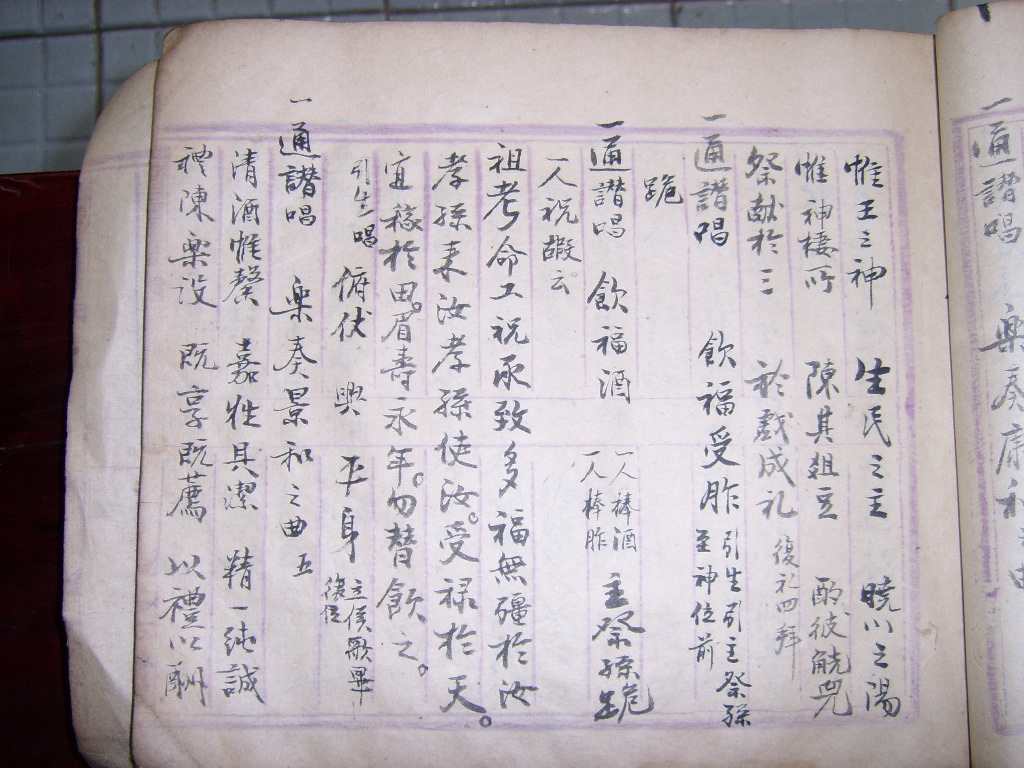 一通讃唱 樂奏康和之曲
惟王之神 生民之主 曉以之陽
惟神棲所 陳其俎豆 酌彼觥兕
祭献於三 於戲成礼 復礼四拜
一通讃唱 飲福受胙 引生引主祭孫
至神位前
跪
一通讃唱 飲福酒 一人棒酒 主祭孫跪
一人棒胙
一人祝嘏云
祖考命工祝承致多福無疆於汝
孝孫来汝孝孫使汝受禄於天
宜稼於田眉壽永年勿替飲之
引生唱 俯伏 興 平身 立俟歌畢
復位
一通讃唱 楽奏景和之曲 五
清酒惟馨 嘉牲具潔 精一純誠
禮陳楽設 既享既薦 以禮以酬